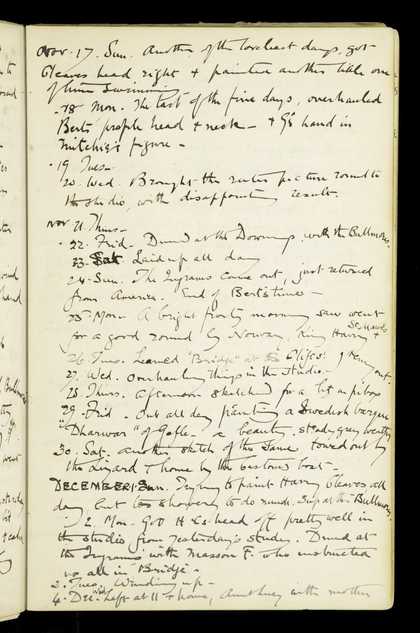 Nov. 17. Sun. Another of the loveliest days, got
Cleaves head right & painted another little one
of them swimming
18 Mon. The last of the fine days, overhauled
Bert's profile head & neck - & G's hand in
figure -
19 Tues -
20. Wed. Brought the picture round to
the studio, with disappointing result.
Nov 21. Thurs -
22. Frid. Dined at the Downings, with the Bullmores.
23. Sat. Laid up all day
24. Sun. The Ingrams came out, just returned
from America. End of Bert's time -
25. Mon. A bright frosty morning saw went
for a good round by Harry &
26 Tues. Learned "Bridge" at
27. Wed. Overhauling things in the studio.-
28. Thurs. Afternoon sketched for a bit
29. Frid - Out all day painting a Swedish barque
"Dharwar" of Gefle - a beauty. Steady grey weather
30. Sat. Another sketch of the same towed out by
the Lizard & home by the boat.
DECEMBER 1. Sun. Trying to paint Harry Cleaves all
day but too showery to do much. Sup at the Bullmores.
2. Mon. Got H Cs. head off pretty well in
the studio from yesterday's study. Dined at
the Ingrams with Masson F. who instructed
us all in "Bridge" -
3. Tues. Winding up -
4. Dec. Wed Left at 11 & home, with mother